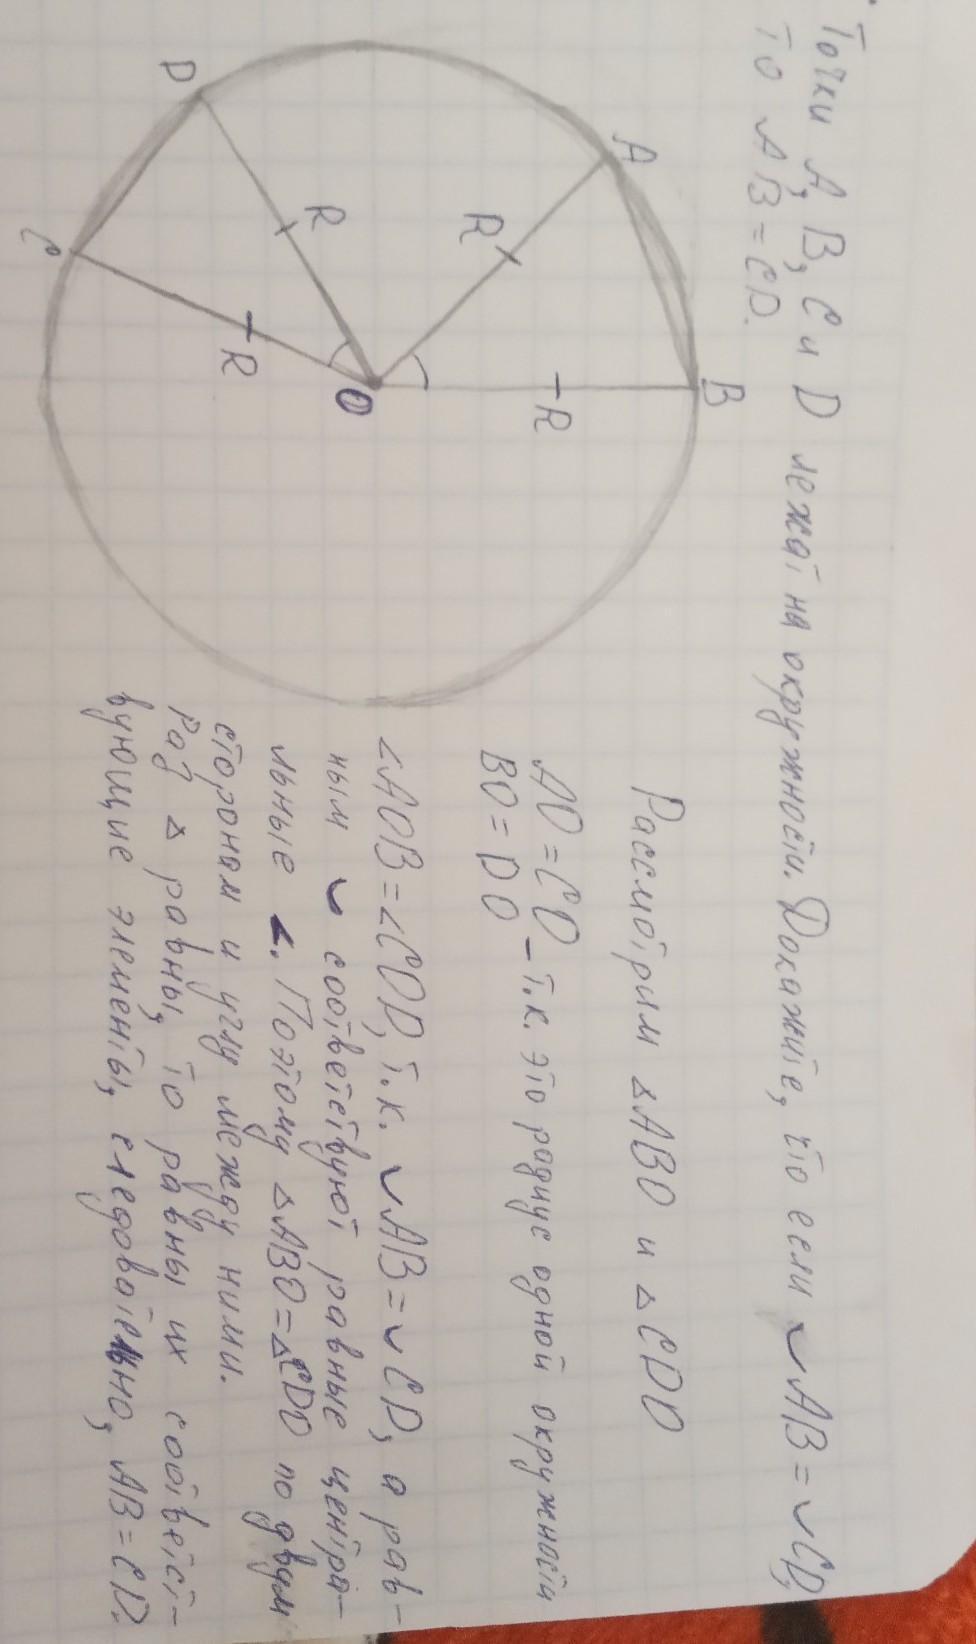 Точки A, B, C и D лежат на окружности. Докажите, что если ◡AB = ◡CD,
то AB = CD.
A
B
C
D
O
R
R
R
R
Рассмотрим △ABO и △CDO
AO = CO
BO = DO
– т.к. это радиус одной окружности
∠AOB = ∠COD, т.к. ◡AB = ◡CD, а рав-
ным ◡ соответствуют равные центра-
льные ∠. Поэтому △ABO = △CDO по двум
сторонам и углу между ними.
Раз △ равны, то равны их соответст-
вующие элементы, следовательно, AB = CD.